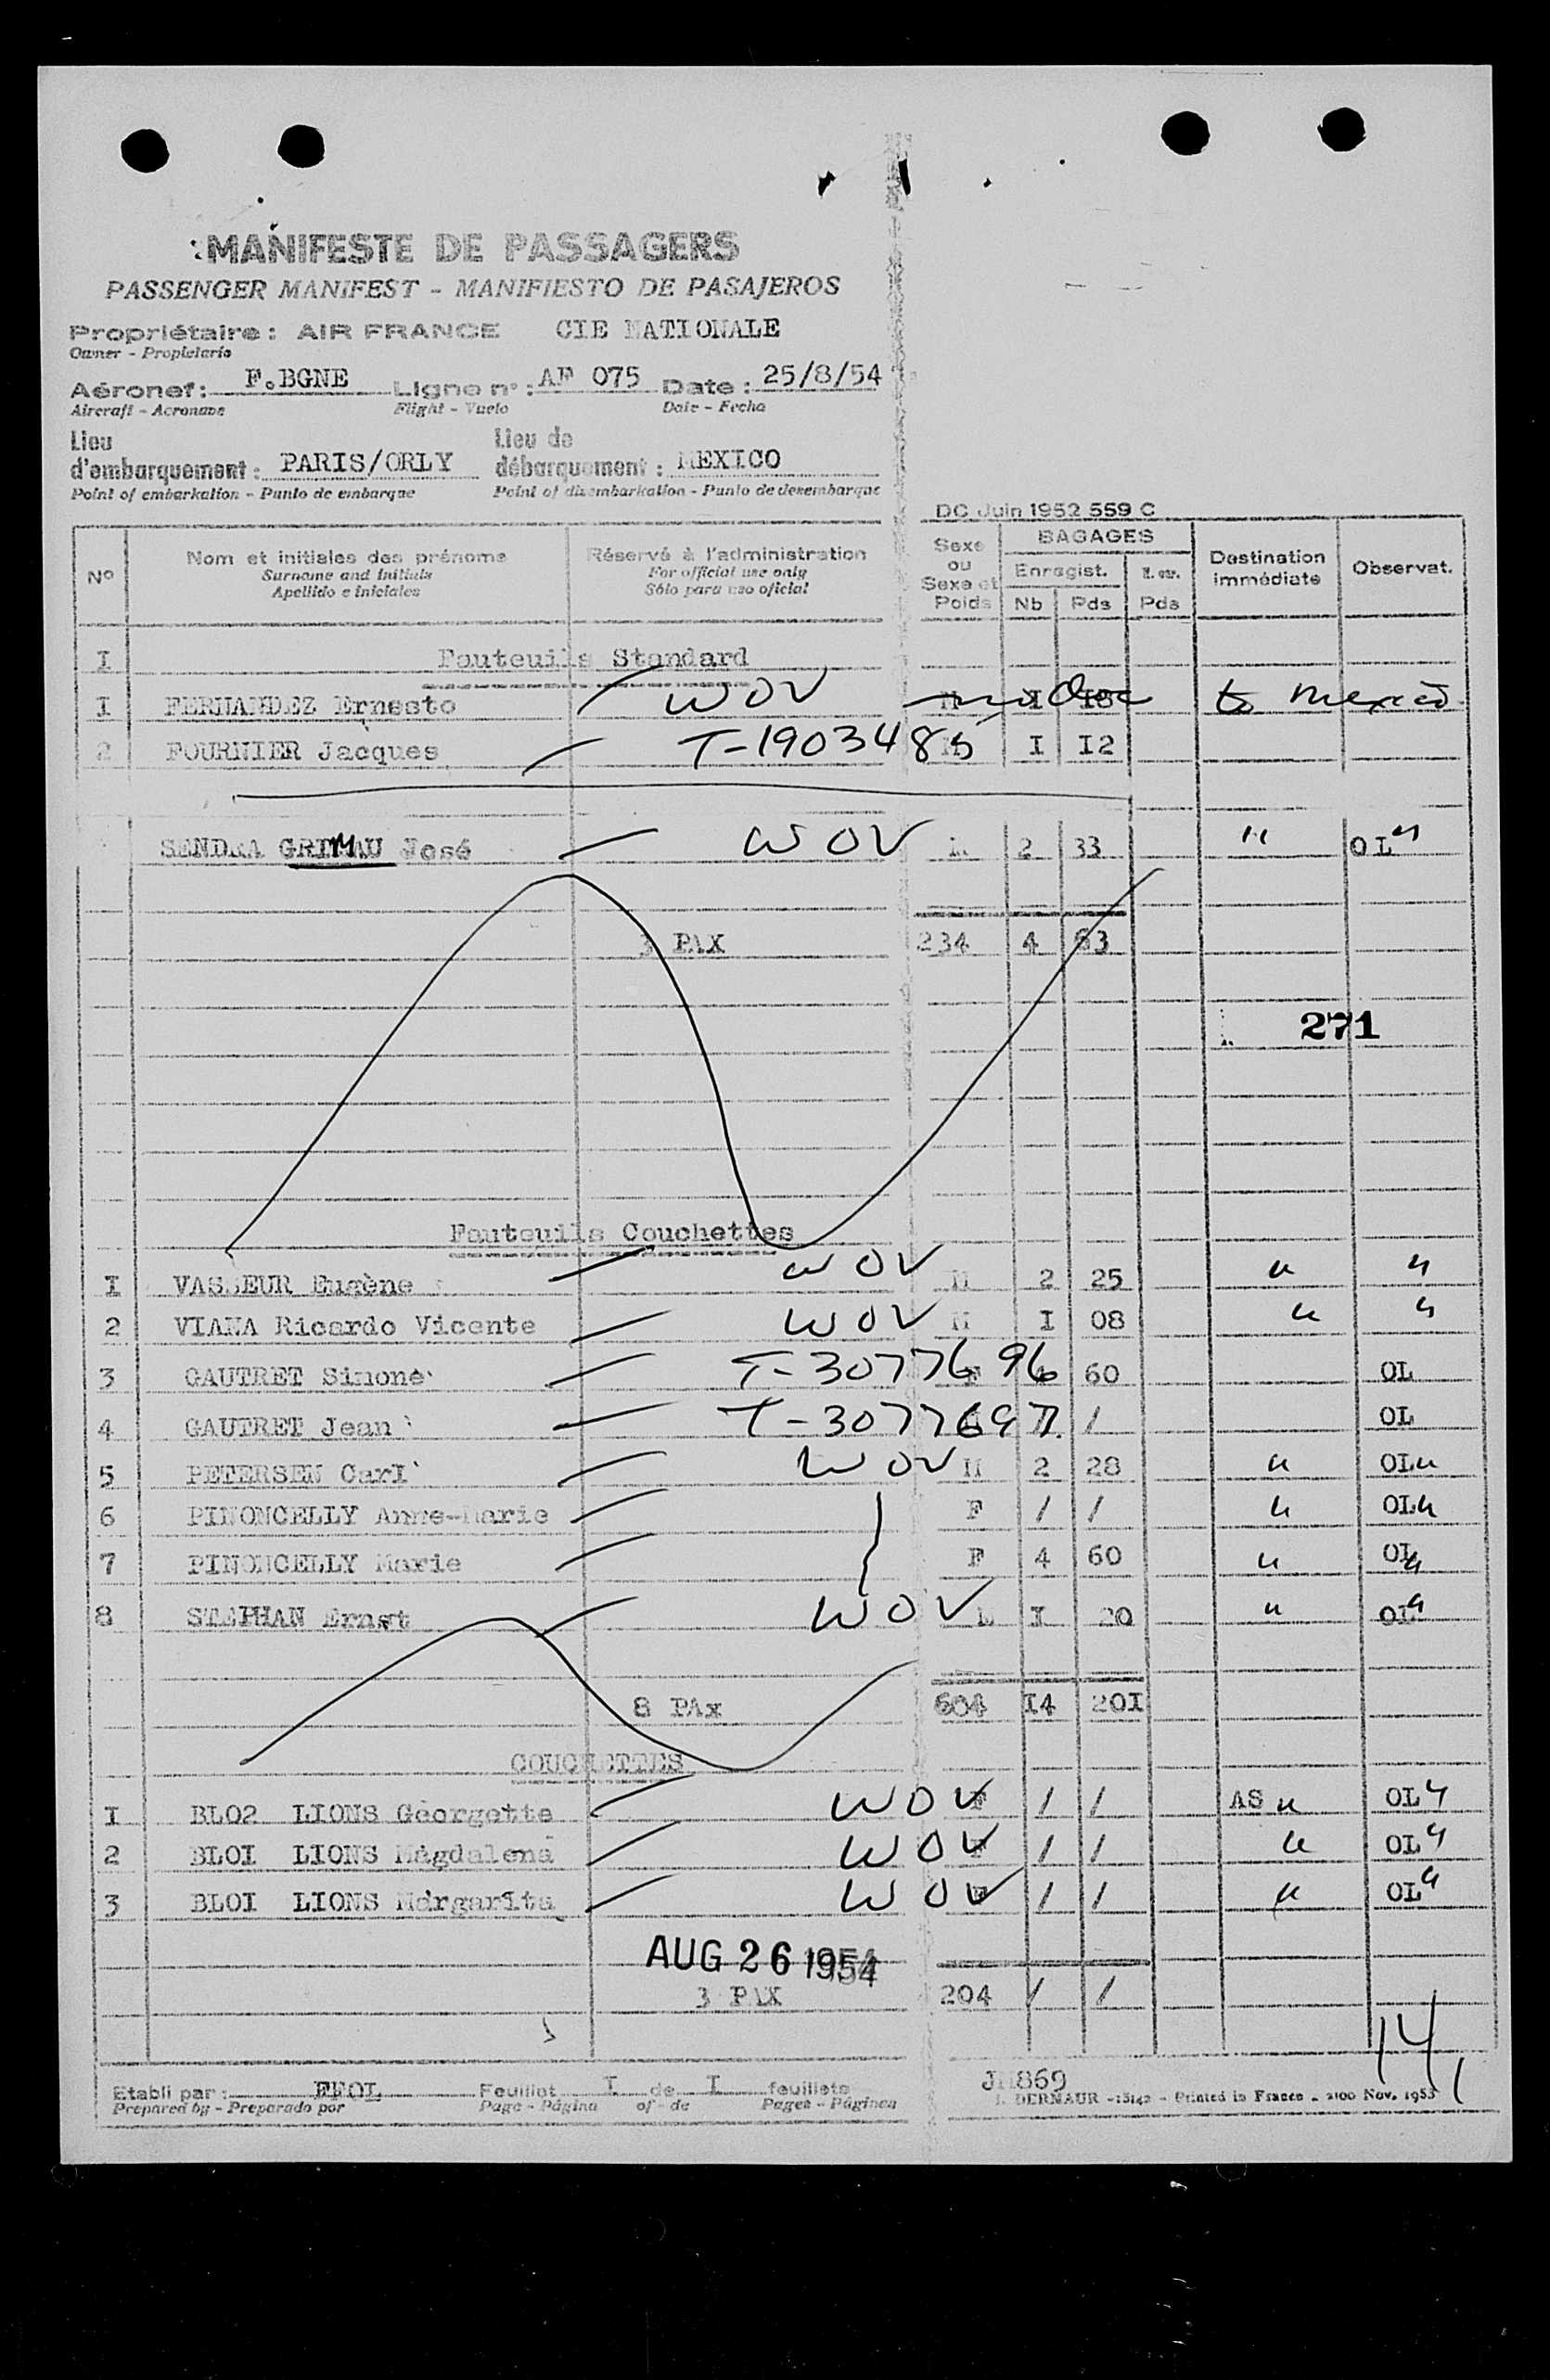 MANIFESTE DE PASSAGERS
PASSENGER MANIFEST - MANIFIESTO DE PASAJEROS
Propriétaire : AIR FRANCE CIE NATIONALE
Owner - Propietario
Aéronef : F.BGNE Ligne n° : AF 075 Date : 25/8/54
Aircraft - Aeronave Flight - Vuelo Date - Fecha
Lieu d'embarquement : PARIS/ORLY Lieu de débarquement : MEXICO
Point of embarkation - Punto de embarque Point of disembarkation - Punto de desembarque
DC Juin 1952 559 C
N° Nom et initiales des prénoms Réservé à l'administration Sexe ou Sexe et Poids BAGAGES Destination immédiate Observat.
Surname and Initials For official use only Enregist.
Apellido e iniciales Sólo para uso oficial Nb Pds Pds
I Fauteuils Standard
I FERNANDEZ Ernesto WOV I to Mexico
2 FOURNIER Jacques T-1903485 I I2
SENDRA GRIMAU José WOV M 2 33 " OL "
3 PAX 234 4 63
271
Fauteuils Couchettes
I VASSEUR Eugène WOV M 2 25 " "
2 VIANA Ricardo Vicente WOV M I 08 " "
3 GAUTRET Simone T-3077696 60 OL
4 GAUTRET Jean T-3077697 / OL
5 PETERSEN Carl WOV M 2 28 " OL "
6 PINONCELLY Anne-Marie F / / " OL "
7 PINONCELLY Marie F 4 60 " OL "
8 STEPHAN Ernst WOV I 20 " OL "
8 PAx 604 I4 20I
COUCHETTES
I BLO2 LIONS Géorgette WOV F / / AS " OL "
2 BLOI LIONS Magdalena WOV F / / " OL "
3 BLOI LIONS Margarita WOV F / / " OL "
AUG 26 1954
3 PAX 204 / /
14
Etabli par : Feuillet I de I feuillets JH869
Prepared by - Preparado por Page - Página of - de Pages - Páginas DERNAUR - 15142 - Printed in France - 2100 Nov. 1953